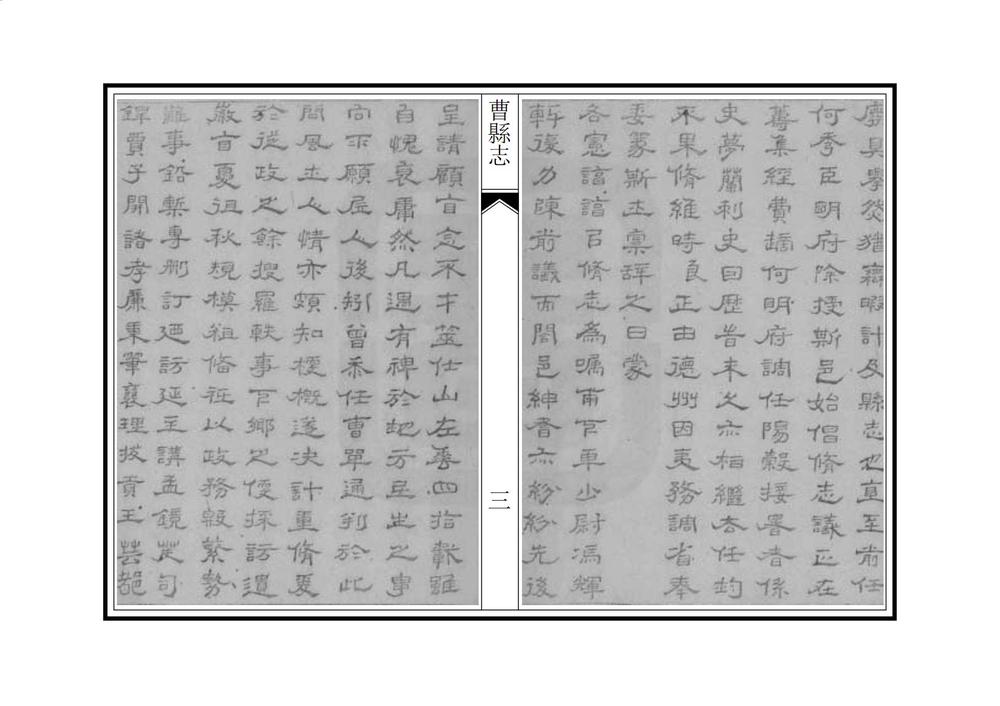 廢具舉然猶靡暇計及縣志也直至前任
何秀臣明府除授斯邑始倡脩志議正在
籌集經費適何明府調任陽穀接署者係
史夢蘭刺史因歷官未久亦相繼去任均
不果脩維時良正由德州因夷務調省奉
委篆斯土稟辭之日蒙
各憲諄諄以脩志為囑甫下車少尉馮輝
軒復力陳前議而閤邑紳耆亦紛紛先後
曹縣志
三
呈請顧自念不才筮仕山左垂四指雖
自愧衰庸然凡遇有裨於地方民生之事
向不願居人後矧曾忝任曹單通判於此
間風土人情亦頗知梗概遂決計重脩爰
於從政之餘搜羅軼事下鄉之便採訪遺
徽自夏徂秋規模粗備祗以政務殷繁勢
難事鉛槧專刪訂廼訪延主講孟鏡芙司
鐸賈子開諸孝廉秉筆襄理拔貢王芸